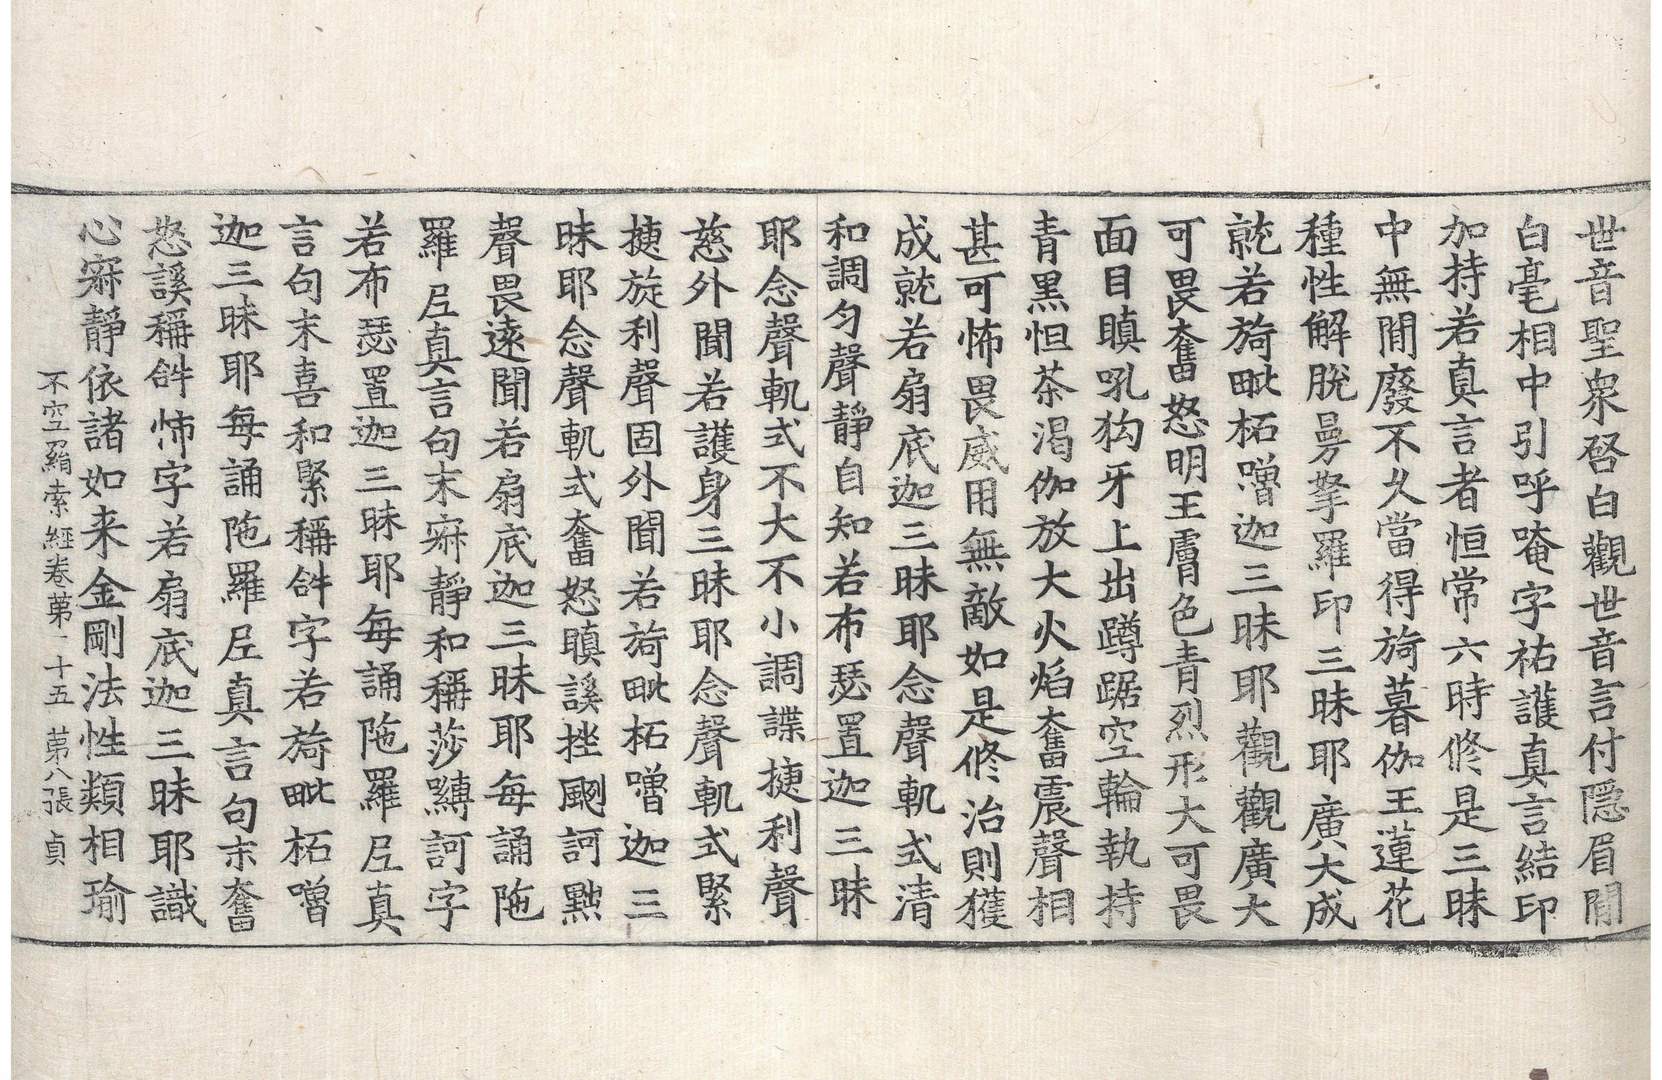 世音聖衆啓白觀世音言付隱眉間
白毫相中引呼唵字祐護真言結印
加持若真言者恒常六時修是三昧
中無間廢不久當得旖暮伽王蓮花
種性解脫曼拏羅印三昧耶廣大成
就若旖毗柘噌迦三昧耶觀觀廣大
可畏奮怒明王膚色青烈形大可畏
面目瞋吼狗牙上出蹲踞空輪執持
青黑怛茶渴伽放大火焰奮震聲相
甚可怖畏威用無敵如是修治則獲
成就若扇底迦三昧耶念聲軌式清
和調匀聲靜自知若布瑟置迦三昧
耶念聲軌式不大不小調諜捷利聲
慈外聞若護身三昧耶念聲軌式緊
捷旋利聲固外聞若旖毗柘噌迦三
昧耶念聲軌式奮怒瞋謑挫颰訶㸃
聲畏遠聞若扇底迦三昧耶每誦陁
羅𡰱真言句末寂靜和稱莎嚩訶字
若布瑟置迦三昧耶每誦陁羅𡰱真
言句末喜和緊稱𤙖字若旖毗柘噌
迦三昧耶每誦陁羅𡰱真言句末奮
怒謑稱𤙖怖字若扇底迦三昧耶識
心寂靜依諸如来金剛法性類相瑜
不空羂索經卷苐二十五 苐八張 貞